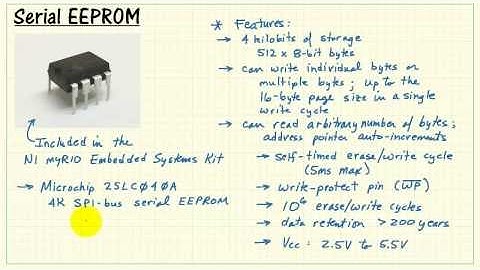 Serial EEPROM
Included in the
NI myRIO Embedded Systems Kit
→ Microchip 25LC040A
4K SPI-bus serial EEPROM
* Features:
→ 4 kilobits of storage
512 x 8-bit bytes
→ can write individual bytes or
multiple bytes; up to the
16-byte page size in a single
write cycle
→ can read arbitrary number of bytes;
address pointer auto-increments
→ self-timed erase/write cycle
(5ms max)
→ write-protect pin (W̅P̅)
→ 10⁶ erase/write cycles
→ data retention > 200 years
→ Vcc: 2.5V to 5.5V